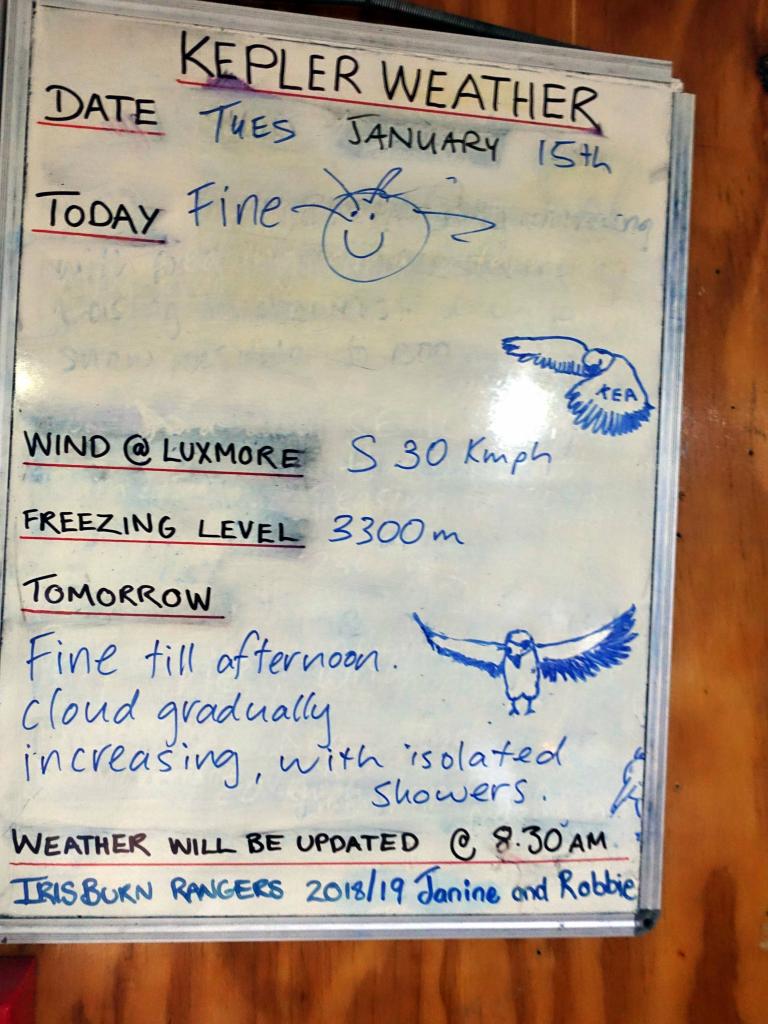 KEPLER WEATHER
DATE TUES JANUARY 15th
TODAY Fine
KEA
WIND @ LUXMORE S 30 Kmph
FREEZING LEVEL 3300m
TOMORROW
Fine till afternoon.
cloud gradually
increasing, with isolated
showers.
WEATHER WILL BE UPDATED @ 8.30 AM
IRISBURN RANGERS 2018/19 Janine and Robbie